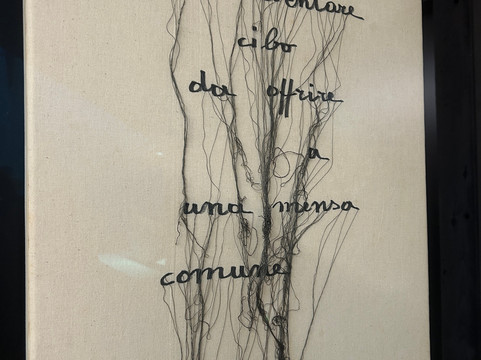 cibo
da offrire
a
una mensa
comune